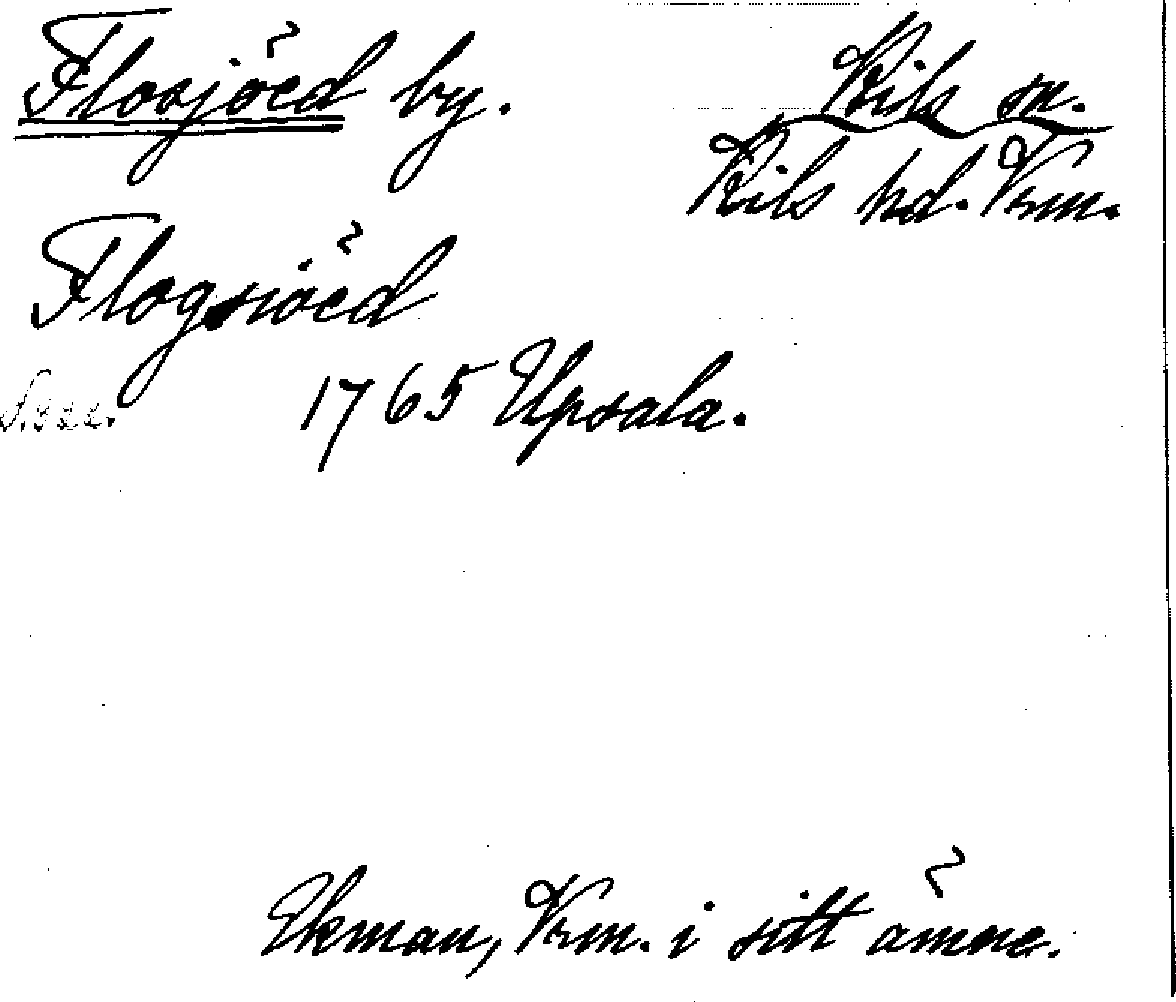 Flosjöed by. Kils sn.
Kils hd. Vrm.
Flogsiöed
1765 Upsala.
Ekman, Vrm. i sitt ämne.